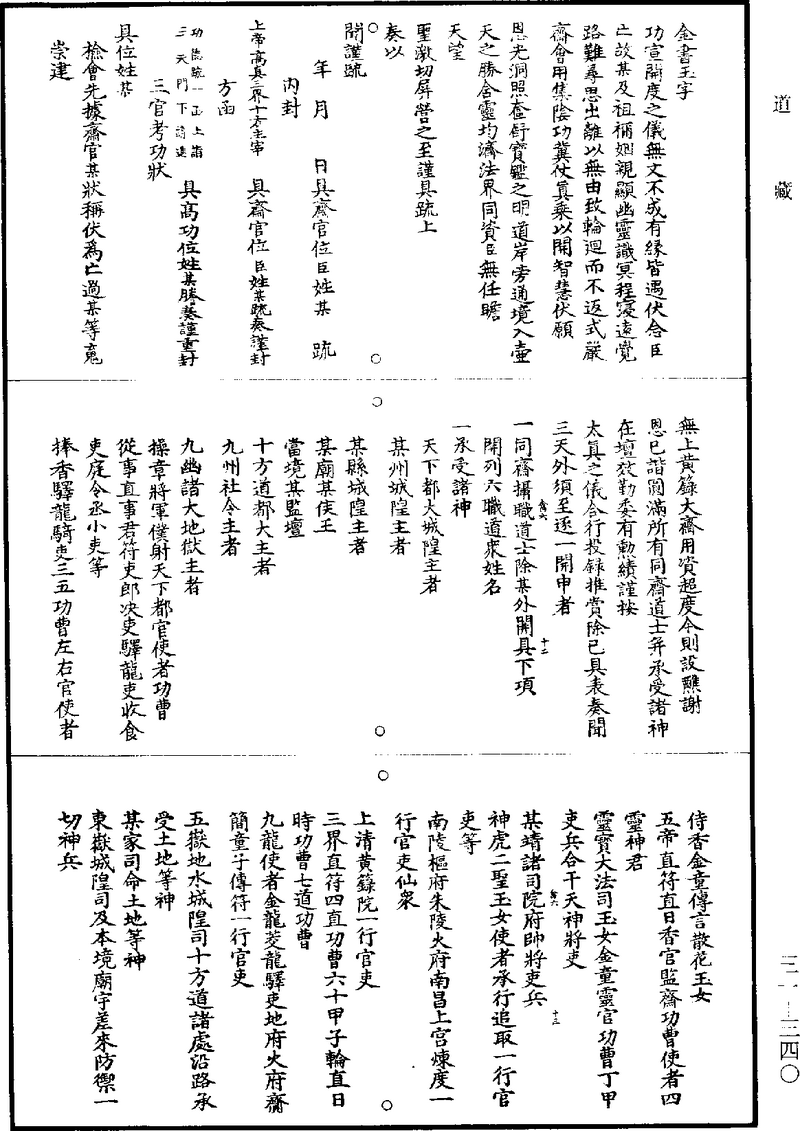 道藏
金書玉字
功宣開度之儀無文不成有緣皆遇伏念臣
亡故某及祖禰姻親顯幽靈識冥程寖遠覺
路難尋思出離以無由致輪迴而不返式嚴
齋會用集陰功冀仗眞乘以開智慧伏願
恩光洞照奎舒寶鑑之明道岸旁通境入壺
天之勝含靈均濟法界同資臣無任瞻
天望
聖激切屏營之至謹具疏上
奏以
聞謹疏
年月日具齋官位臣姓某疏
內封
上帝高真三界十方主宰 具齋官位臣姓某疏奏謹封
方函
功德疏一函上詣
三天門下請進 具高功位姓某勝奏謹重封
三官考功狀
具位姓某
檢會先據齋官某狀稱伏爲亡過某等䰟
崇建
無上黃籙大齋用資超度今則設醮謝
恩已諧圓滿所有同齋道士并承受諸神
在壇效勤委有勲績謹按
太真之儀合行投錄推賞除已具表奏聞
三天外須至逐一開申者
一同齋攝職道士除某外開具下項
開列六職道衆姓名
一承受諸神
天下都大城隍主者
某州城隍主者
某縣城隍主者
某廟某侯王
當境某監壇
十方道都大主者
九州社令主者
九幽諸大地獄主者
操章將軍僕射天下都官使者功曹
從事直事君符吏郎決吏驛龍吏收食
吏庭令丞小吏等
捧香驛龍騎吏三五功曹左右官使者
侍香金童傳言散花玉女
五帝直符直日香官監齋功曹使者四
靈神君
靈寶大法司玉女金童靈官功曹丁甲
吏兵合干天神將吏
某靖諸司院府帥將吏兵
神虎二聖玉女使者承行追取一行官
吏等
南陵樞府朱陵火府南昌上宮煉度一
行官吏仙衆
上清黃籙院一行官吏
三界直符四直功曹六十甲子輪直日
時功曹七道功曹
九龍使者金龍茭龍驛吏地府火府齎
簡童子傳符一行官吏
五嶽地水城隍司十方道諸處沿路承
受土地等神
某家司命土地等神
東嶽城隍司及本境廟宇差來防禦一
切神兵
三一—三四〇